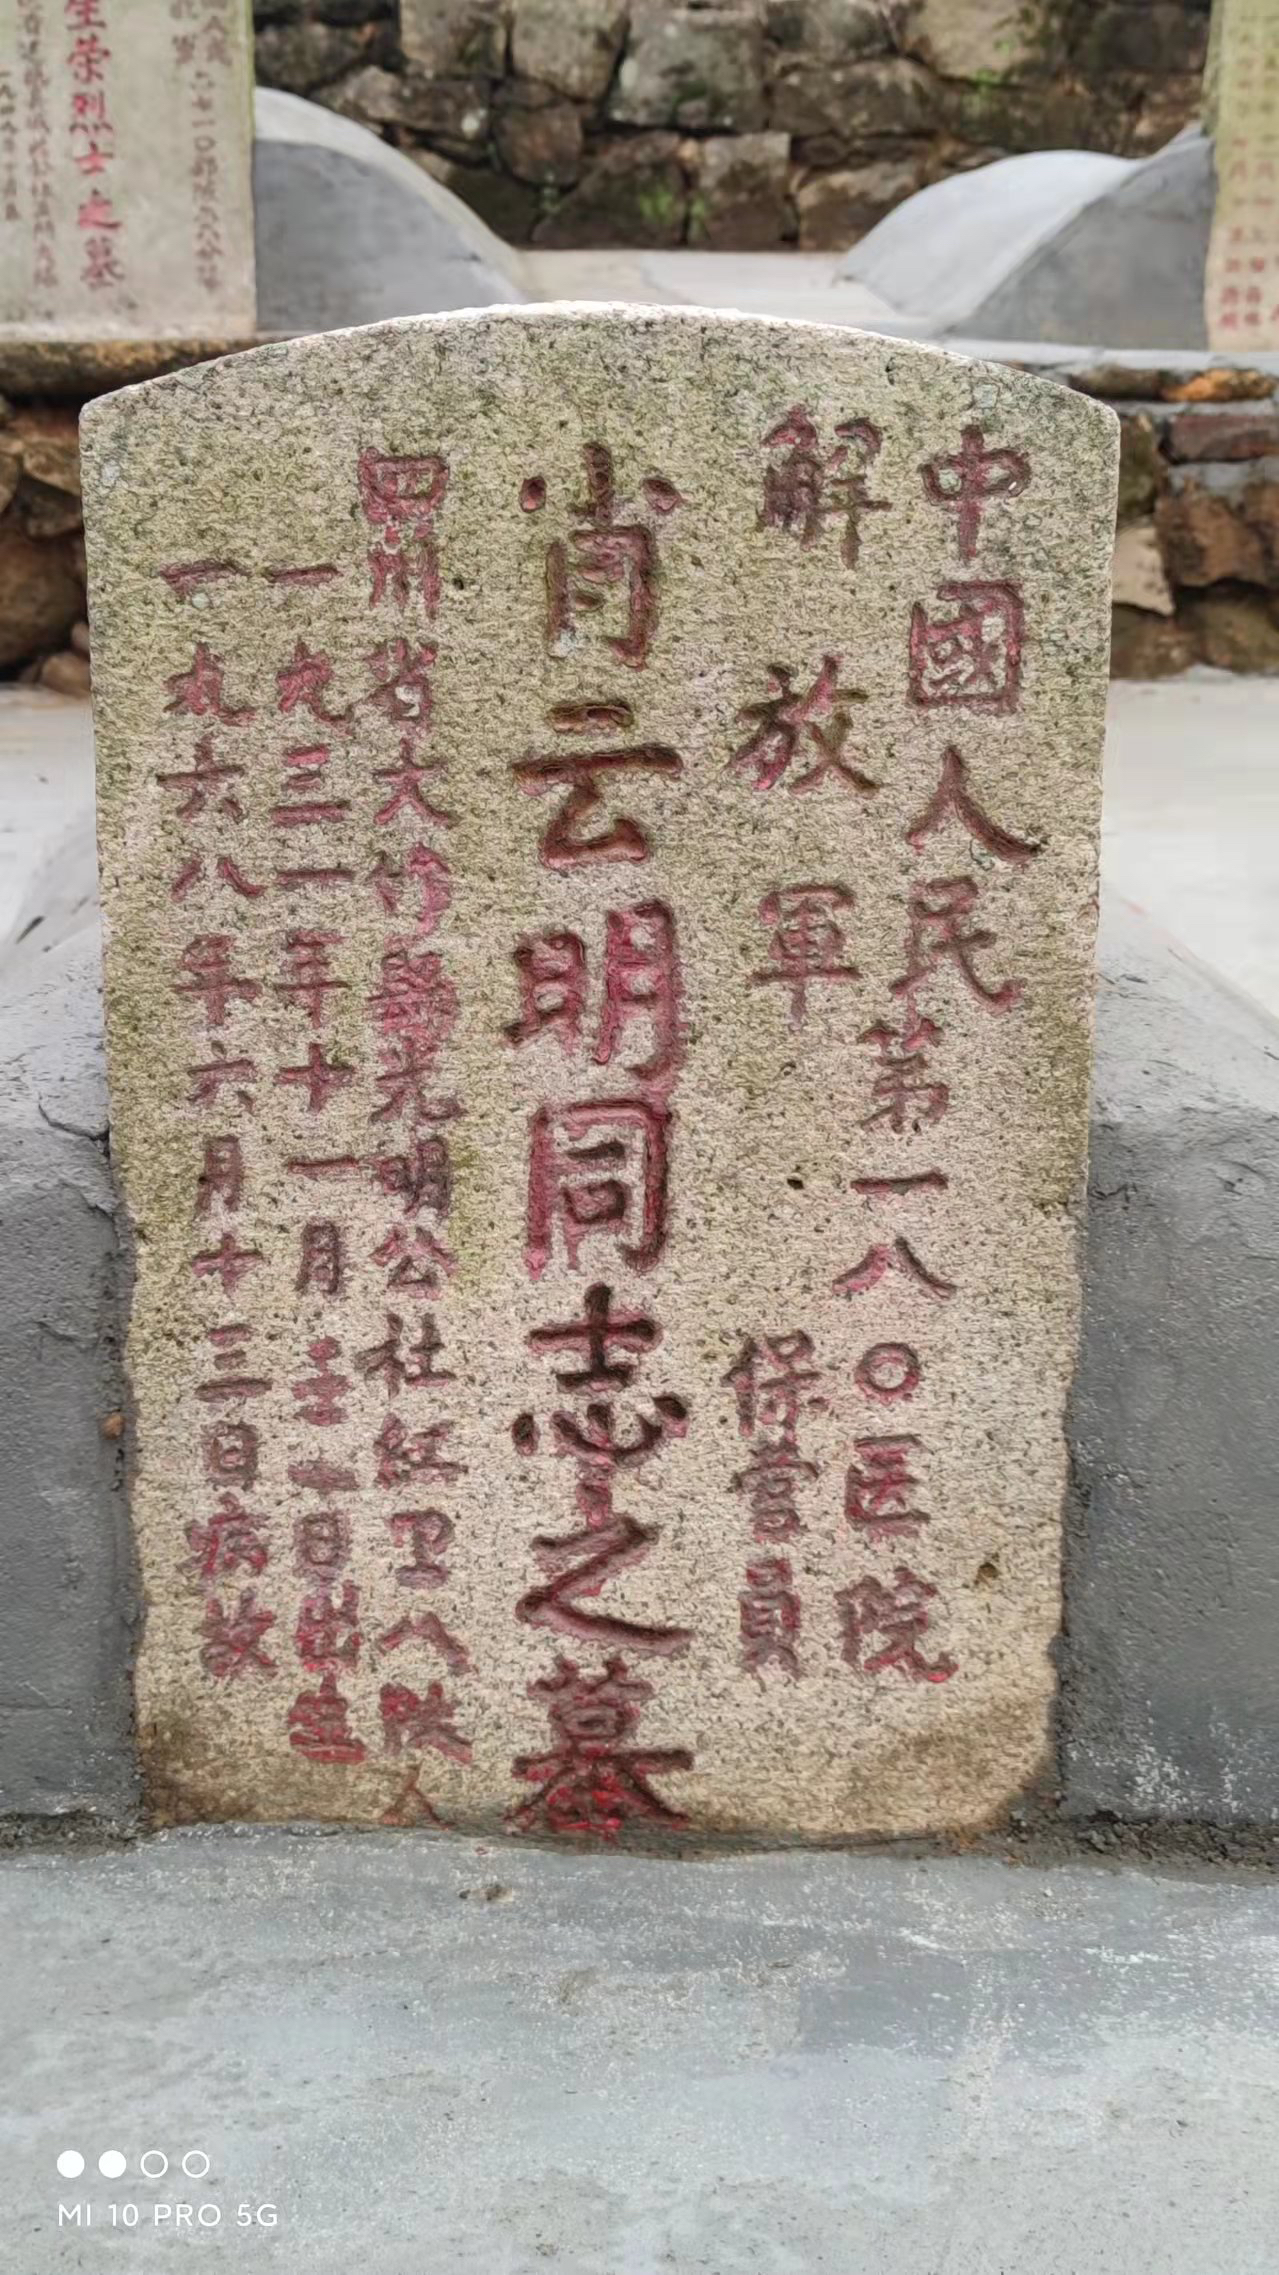 中國人民
解放軍
第一八〇医院
保管員
肖云明同志之墓
四川省大竹县光明公社红卫八队人
一九三一年十一月二十日出生
一九六八年六月十三日病故
荣烈士之墓
MI 10 PRO 5G